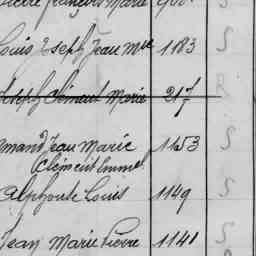 Pierre François Marie
Louis Joseph Jean Mie 1183 S
Joseph Clément Marie 217 R
Armand Jean Marie 1153 S
Clément Emmel
Alphonse Louis 1149 S
Jean Marie Pierre 1141 S